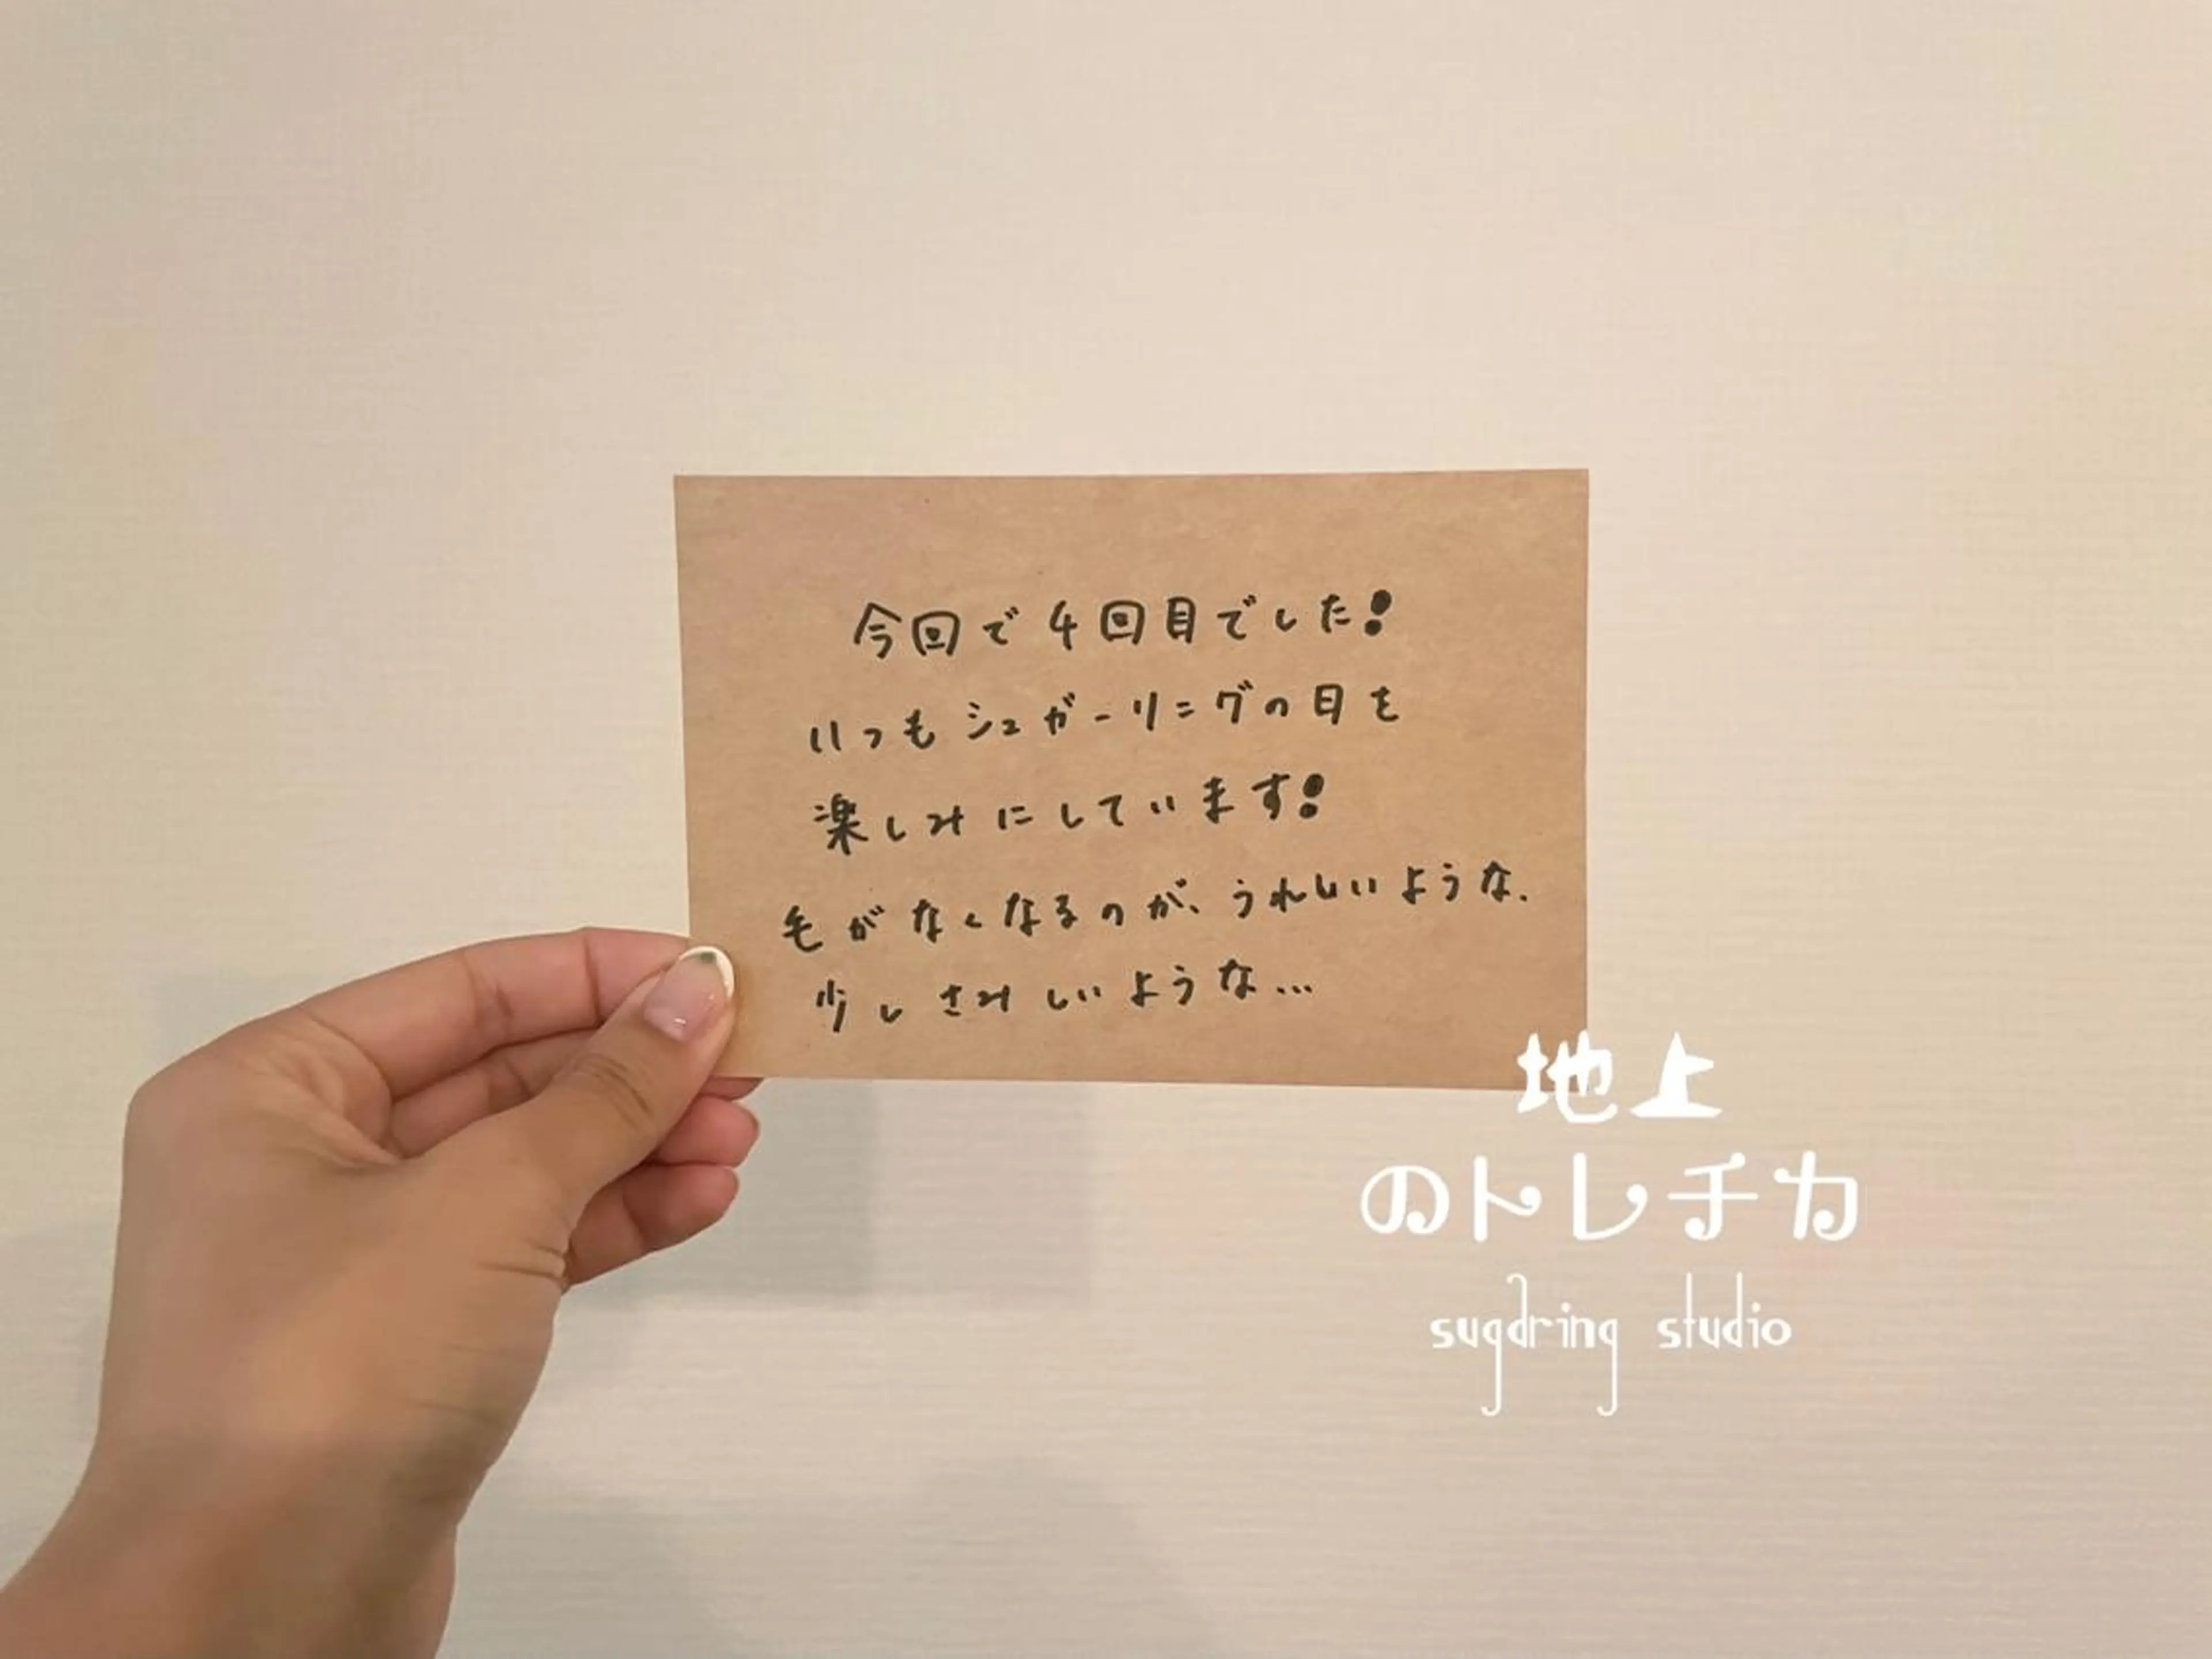 今回で4回目でした!
いつもシュガーリングの日を
楽しみにしています!
毛がなくなるのが、うれしいような、
少しさみしいような...
地上
のトレチカ
sugaring studio